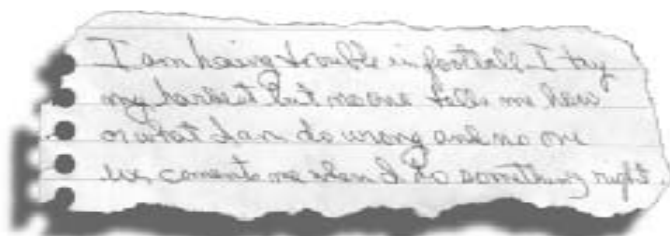 I am having trouble in football. I try
my hardest but no one tells me how
or what I am do wrong and no one
coments me when I do something right.